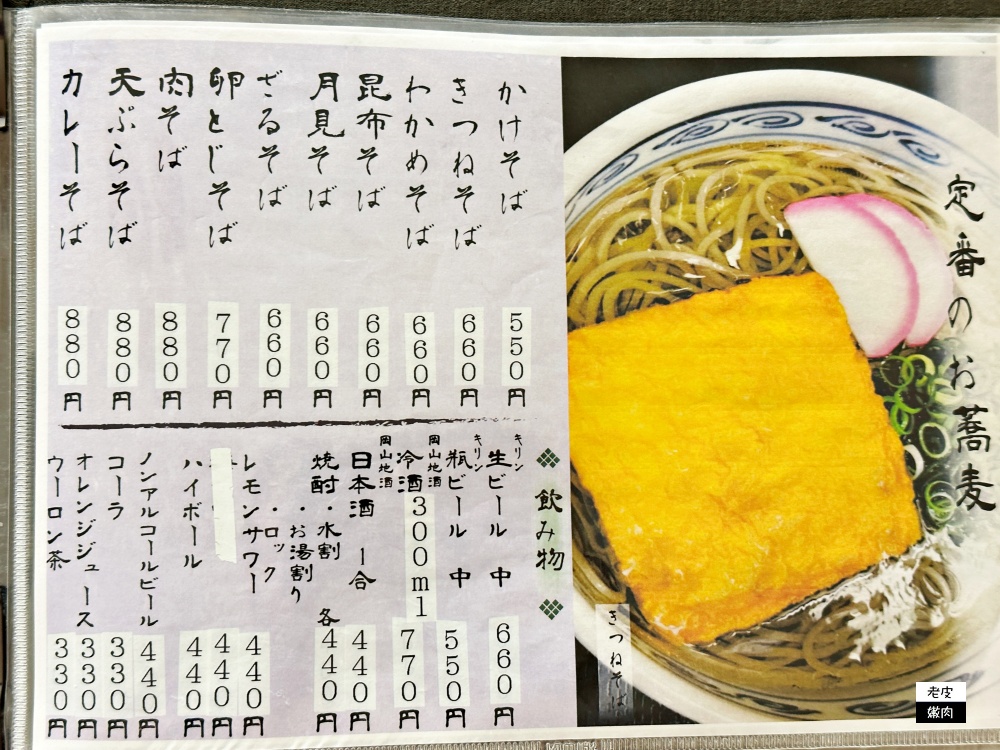 定番のお蕎麦
かけそば 550円
きつねそば 660円
わかめそば 660円
昆布そば 660円
月見そば 660円
ざるそば 660円
卵とじそば 770円
肉そば 880円
天ぷらそば 880円
カレーそば 880円
飲み物
キリン
生ビール 中 660円
キリン
瓶ビール 中 550円
岡山地酒
冷酒300ml 770円
岡山地酒
日本酒 一合 440円
焼酎 ・水割 各440円
・お湯割り
・ロック
レモンサワー 440円
440円
ハイボール 440円
ノンアルコールビール 440円
コーラ 330円
オレンジジュース 330円
ウーロン茶 330円
きつねそば
老皮
嫩肉